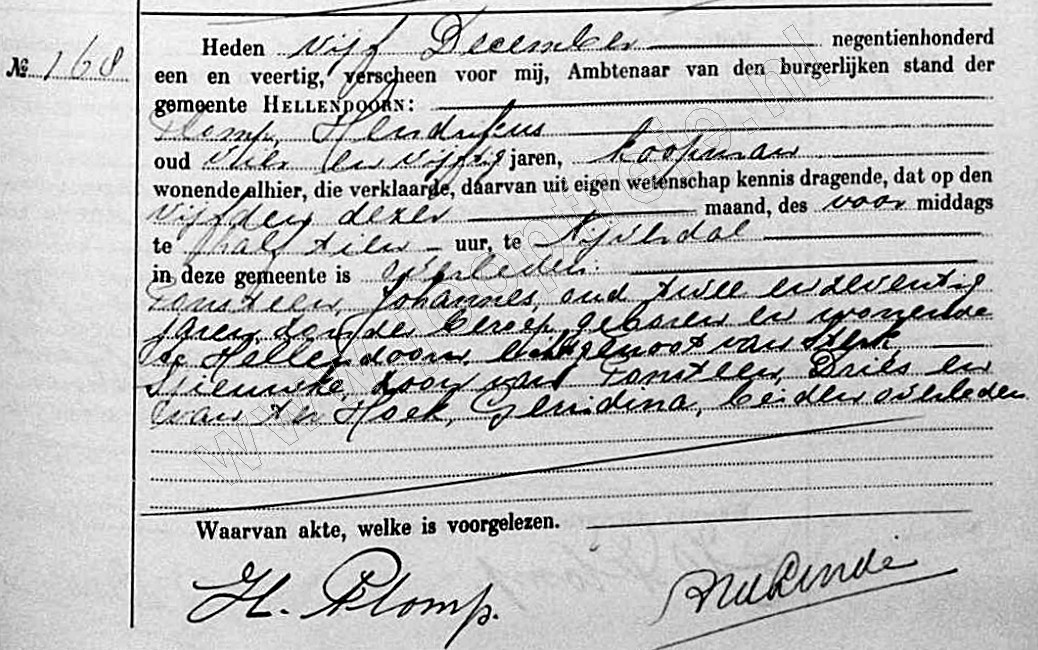 № 168
Heden vijf December negentienhonderd
een en veertig, verscheen voor mij, Ambtenaar van den burgerlijken stand der
gemeente HELLENDOORN:
Plomp, Hendrikus
oud vier en vijftig jaren, koopman
wonende alhier, die verklaarde, daarvan uit eigen wetenschap kennis dragende, dat op den
vijfden dezer maand, des voor middags
te half tien uur, te Nijverdal
in deze gemeente is overleden:
Fonsteen, Johannes, oud twee en zeventig
jaren, zonder beroep, geboren en wonende
te Hellendoorn, echtgenoot van Sterk
, zoon van Fonsteen, Dries en
van den Hoek, Gerridina, beiden overleden.
Waarvan akte, welke is voorgelezen.
H. Plomp.